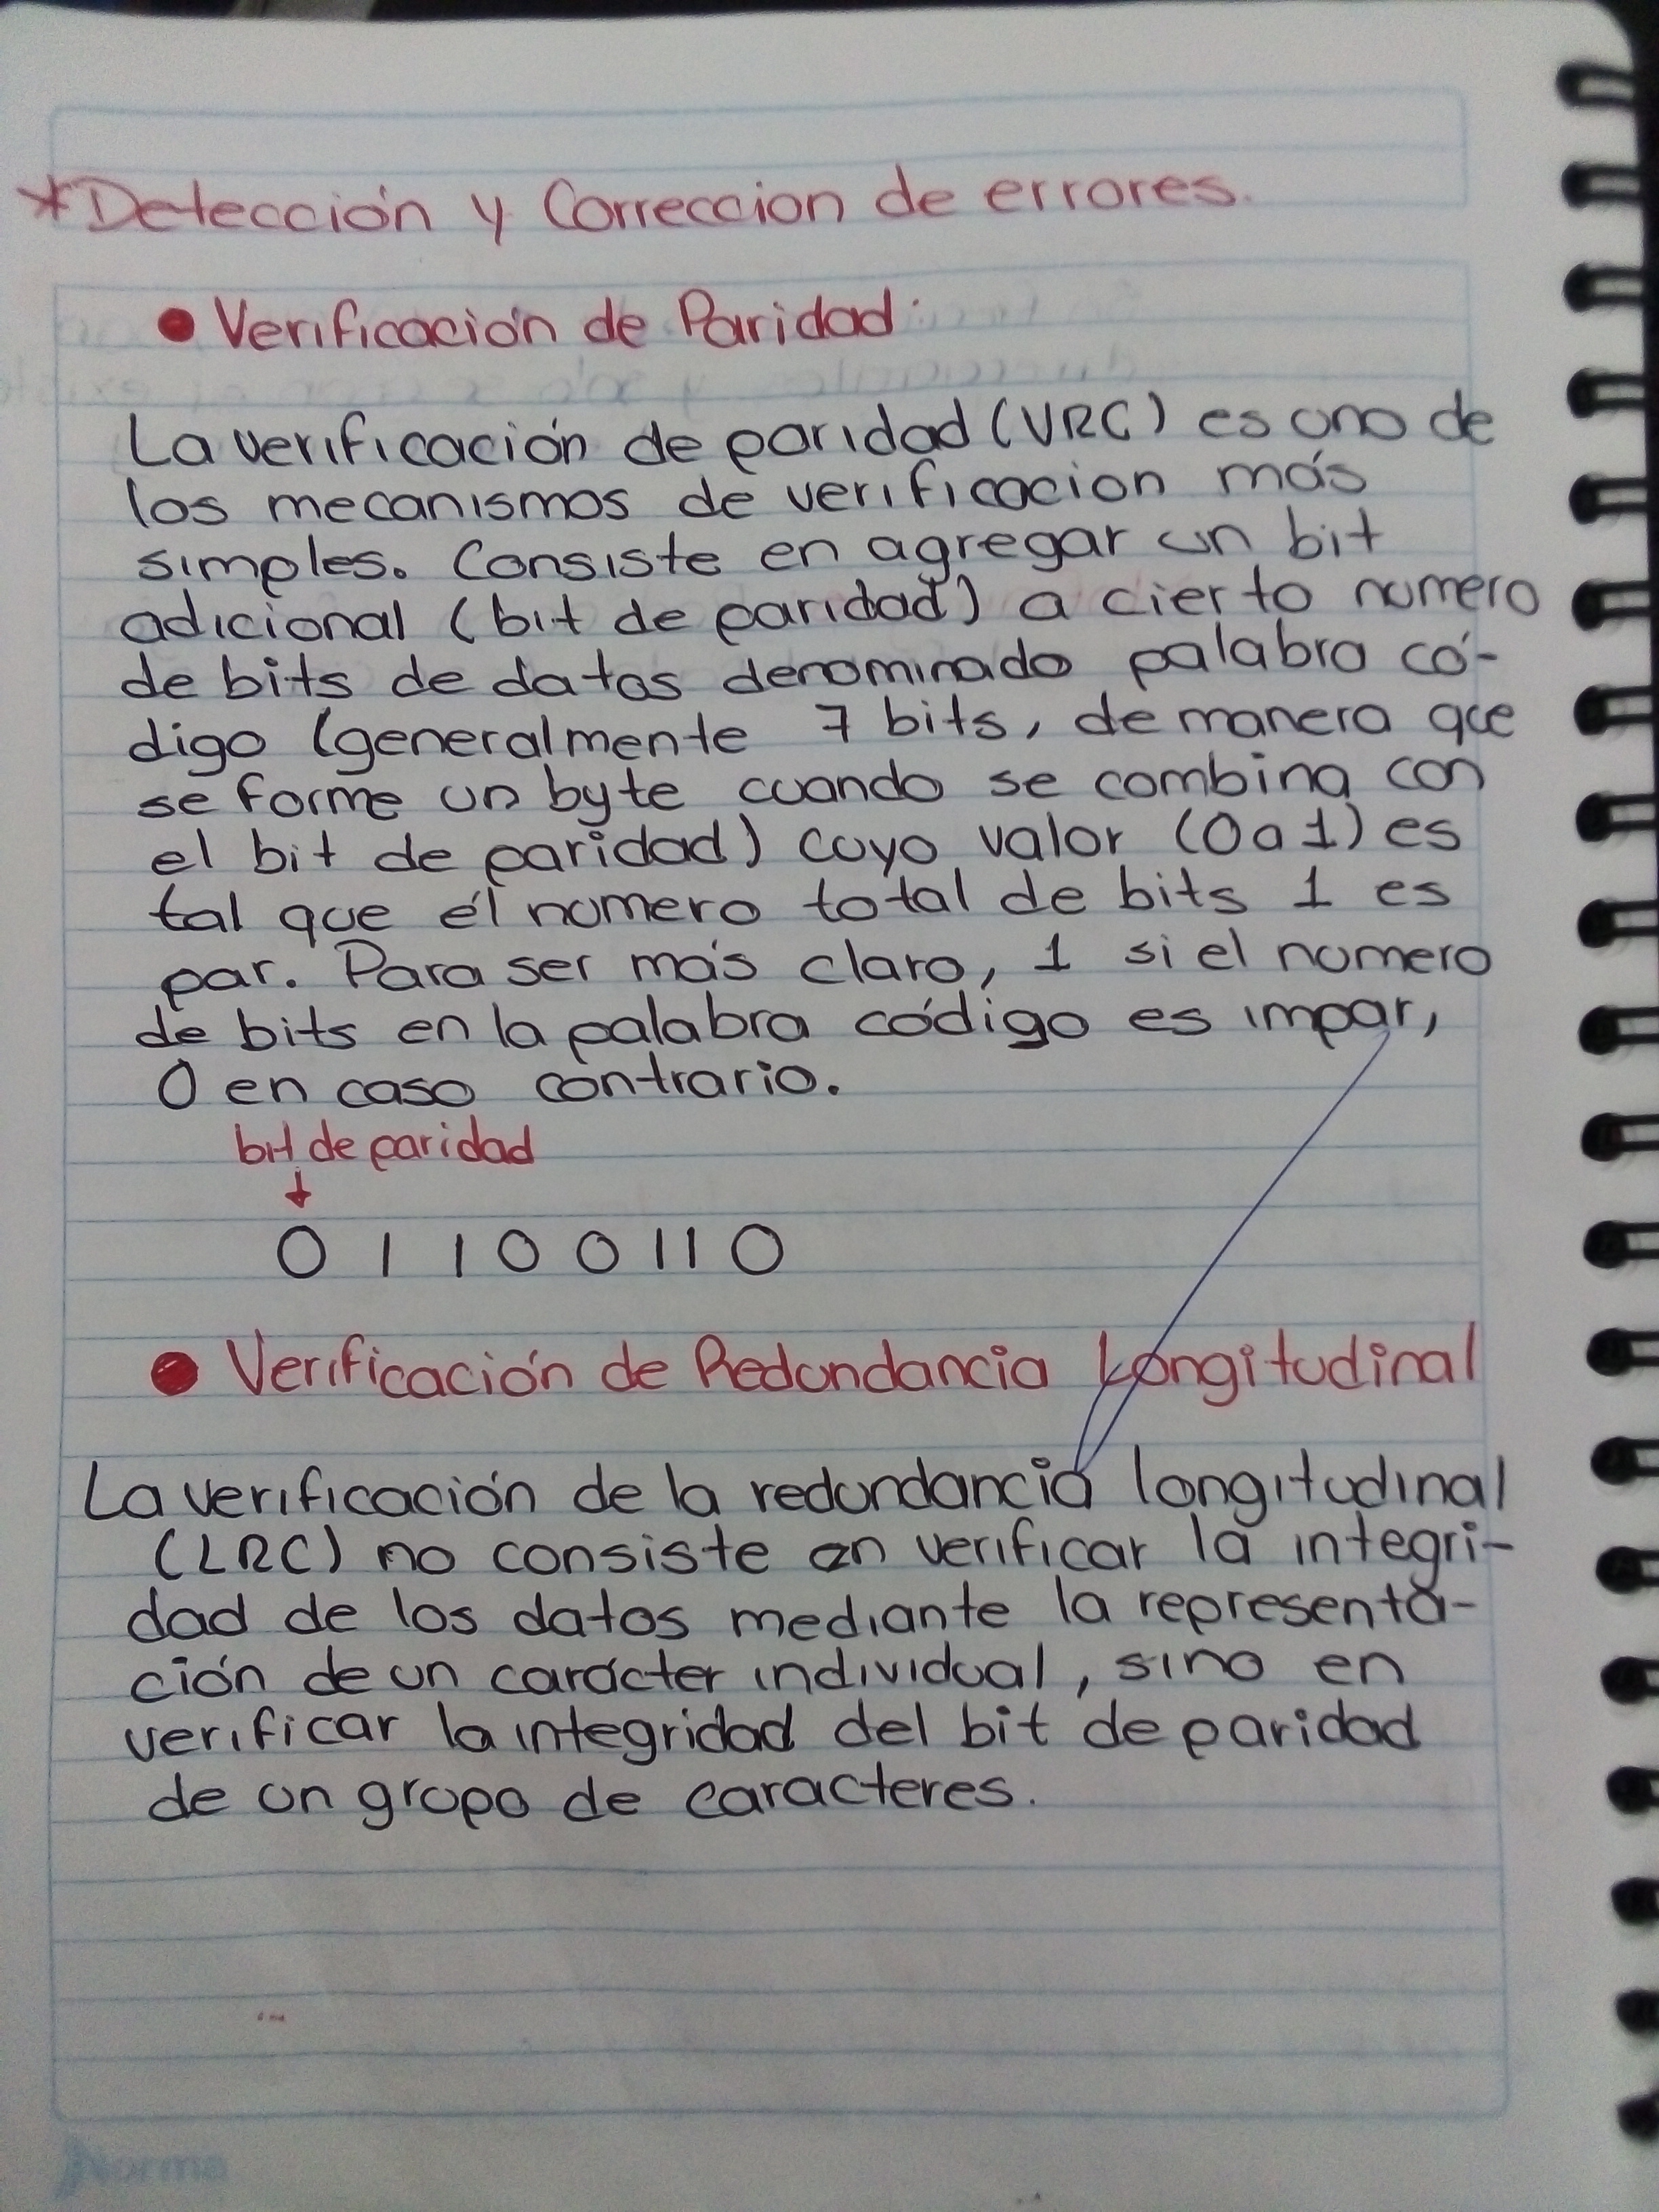 *Detección y Correccion de errores.
• Verificación de Paridad:
La verificación de paridad (VRC) es uno de
los mecanismos de verificacion más
simples. Consiste en agregar un bit
adicional (bit de paridad) a cierto numero
de bits de datos denominado palabra có-
digo (generalmente 7 bits, de manera que
se forme un byte cuando se combina con
el bit de paridad) cuyo valor (0 a 1) es
tal que él numero total de bits 1 es
par. Para ser más claro, 1 si el numero
de bits en la palabra código es impar,
0 en caso contrario.
bit de paridad
↓
0 1 1 0 0 1 1 0
• Verificación de Redundancia Longitudinal
La verificación de la redundancia longitudinal
(LRC) no consiste en verificar la integri-
dad de los datos mediante la representa-
ción de un carácter individual, sino en
verificar la integridad del bit de paridad
de un grupo de caracteres.
Norma